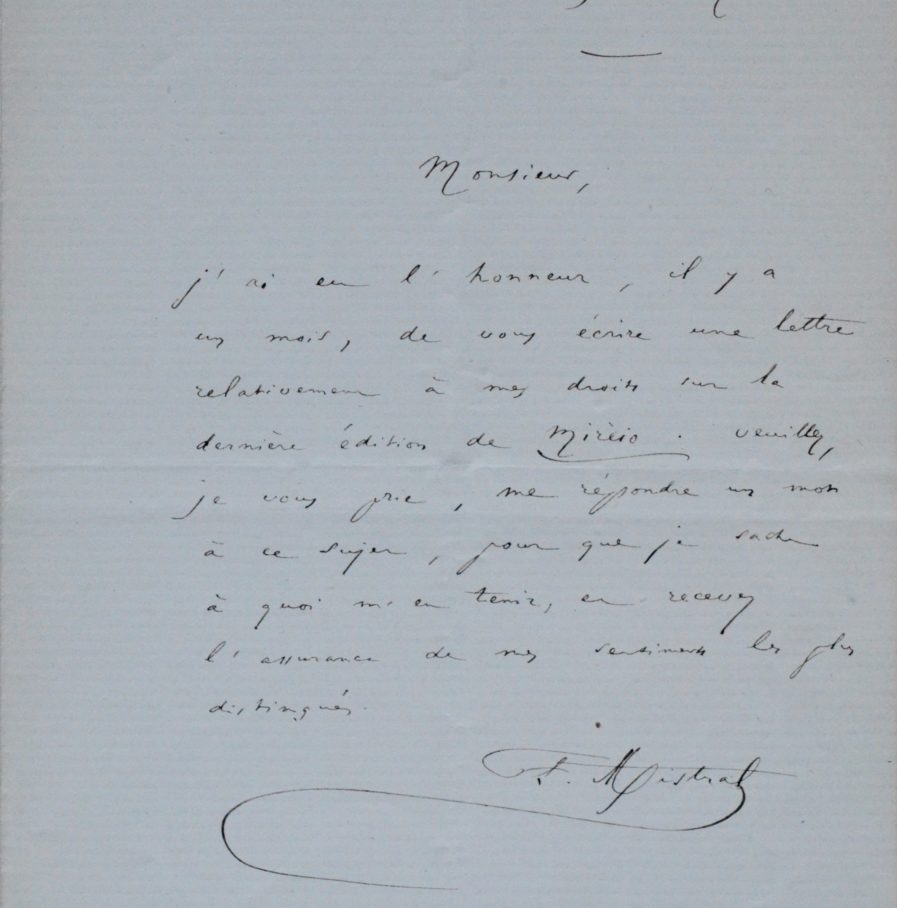 Monsieur,
j'ai eu l'honneur, il y a
un mois, de vous écrire une lettre
relativement à mes droits sur la
dernière édition de Mirèio. veuillez,
je vous prie, me répondre un mot
à ce sujet, pour que je sache
à quoi m'en tenir, et recevez
l'assurance de mes sentiments les plus
distingués.
F. Mistral